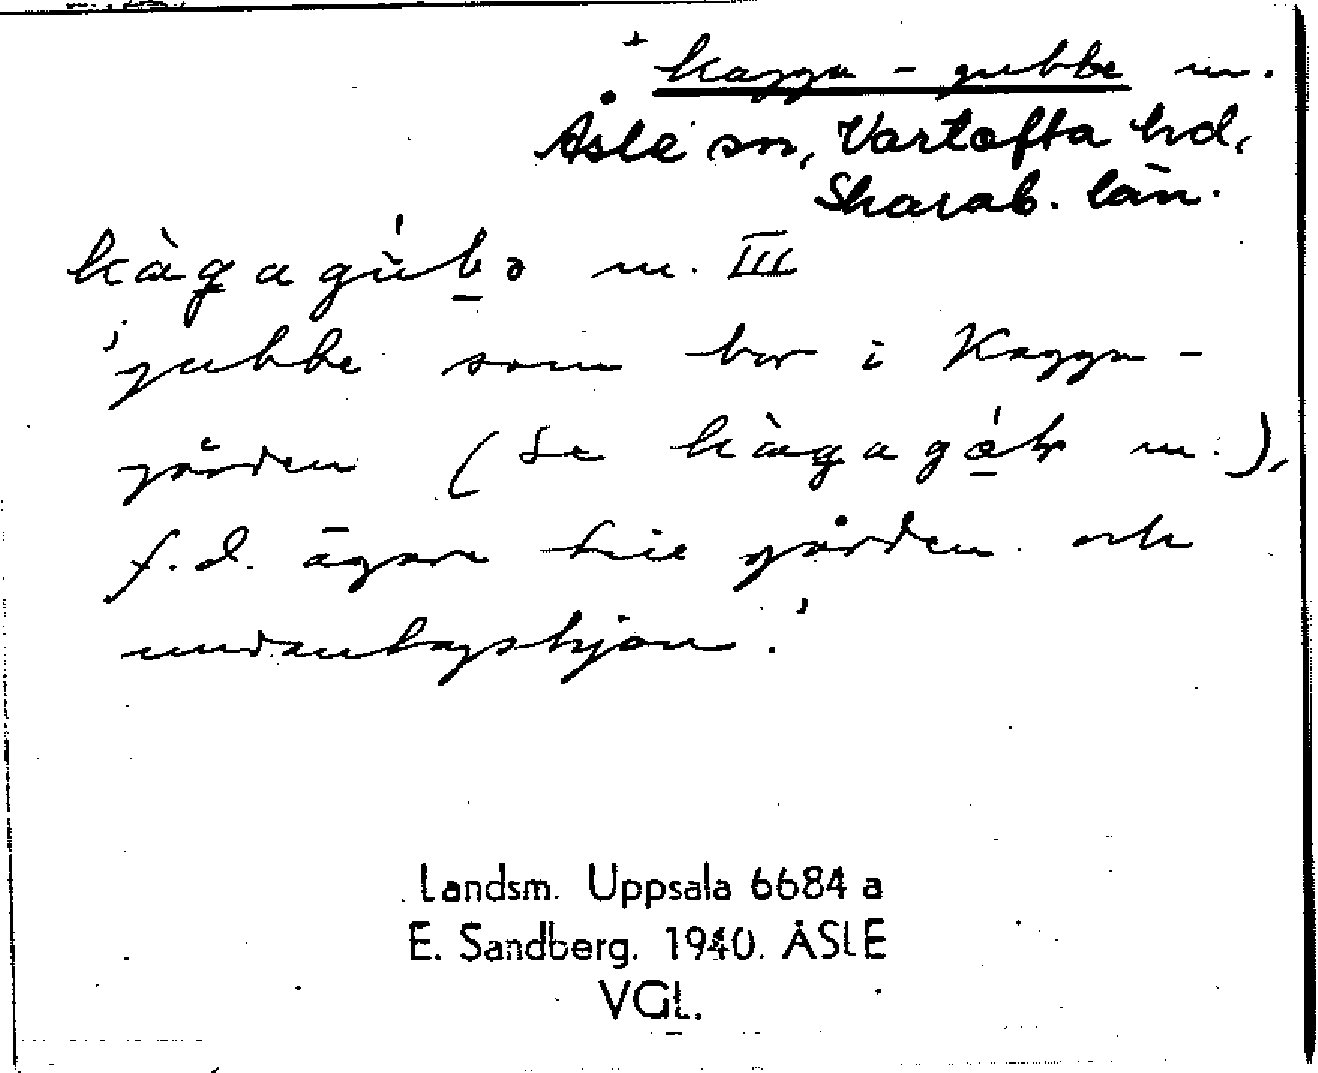 + kagga-gubbe m.
Åsle sn, Vartofta hd,
Skarab. län.
kàgagúbə m. III
'gubbe som bor i Kagga-
gården (se kàgagáɽ m.),
f.d. ägare till gården och
undantagshjon.'
Landsm. Uppsala 6684 a
E. Sandberg. 1940. ÅSLE
VGL.